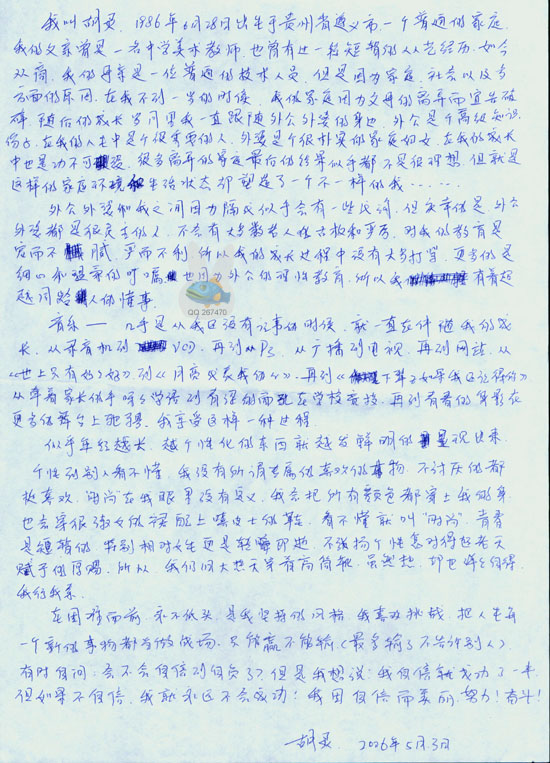 我叫胡灵，1986年6月28日出生于贵州省遵义市一个普通的家庭。
我的父亲曾是一名中学美术教师，也曾有过一段短暂的从艺经历，如今
从商，我的母亲是一位普通的技术人员，但是因为家庭、社会以及
方面的原因，在我不到一岁的时候，我的家庭因父母的离异而宣告破
碎，随后的成长岁月里我一直跟随外公外婆的身边，外公是个高级知识
份子，在我的人生中是个很重要的人，外婆是个很朴实的家庭妇女，在我的成长
中也是功不可没，很多离异的家庭最后的结果似乎都不是很理想，但就是
这样的家庭环境和生活状态却塑造了一个不一样的我……
外公外婆和我之间因为隔代似乎会有一些代沟，但庆幸的是外公
外婆都是很民主的人，不会有大多数老人的古板和严厉，对我的教育是
宽而不腻，严而不利，所以我的成长过程中没有太多打骂，更多的是
细心和经常的叮嘱，也因为外公的理性教育，所以我有着超
越同龄人的懂事。
音乐——几乎是从我还没有记事的时候，就一直在伴随我的成
长，从录音机到VCD，再到从P3，从广播到电视，再到网站，从
《世上只有妈妈好》到《月亮代表我的心》，再到《下辈子如果我还记得你》
从牵着家长的手哼着学语到有强的而在学校表演，再到有着的身影在
更多的舞台上驰骋，我享受这样一种过程。
似乎年纪越大，越个性化的东西就越发鲜明的呈现出来。
个性到别人看不懂，我没有所谓专属的喜欢的事物，不讨厌的都
挺喜欢，“时尚”在我眼里没有定义，我会把所有颜色都穿上我的身，
也会穿很淑女的裙配上嘻皮士的鞋，看不懂就叫“时尚”，青春
是短暂的，特别相对女生更是转瞬即逝，不张扬个性怎对得起老天
赋予你的厚爱，所以，我们同大热天穿着高筒靴，虽然热，却也绰绰自得，
我行我素。
在困难面前，永不低头，是我坚持的风格，我喜欢挑战，把人生每
一个新的事物都当做战场，只能赢不能输（最多输了不告诉别人）
有时自问：会不会自信到自负了？但是我想说：我自信就成功了一半，
但如果不自信，我就永远不会成功！我因自信而美丽，努力！奋斗！
胡灵 2026年5月3日
QQ 267470